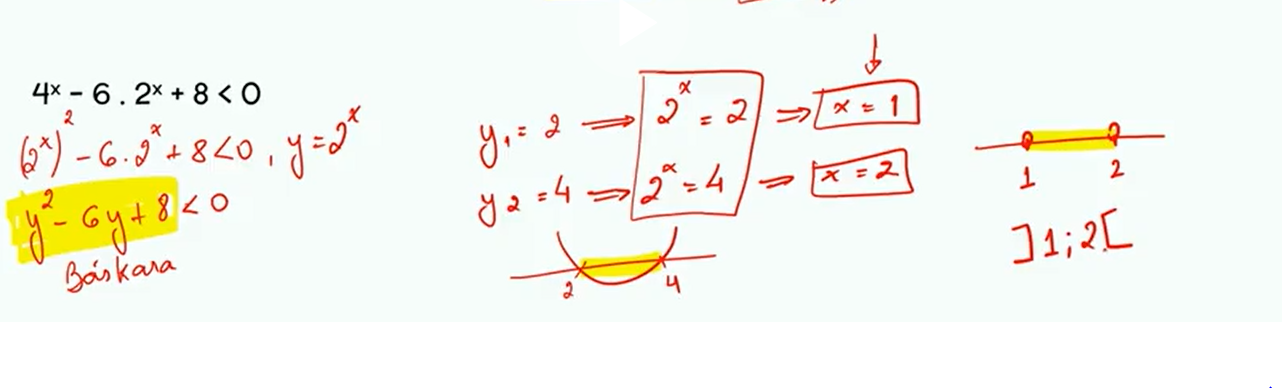 4ˣ – 6 . 2ˣ + 8 < 0
(2ˣ)² - 6 . 2ˣ + 8 < 0 , y = 2ˣ
y² - 6y + 8 < 0
Báskara
y₁ = 2 ⇒ 2ˣ = 2 ⇒ x = 1
y₂ = 4 ⇒ 2ˣ = 4 ⇒ x = 2
2 4
1 2
]1;2[